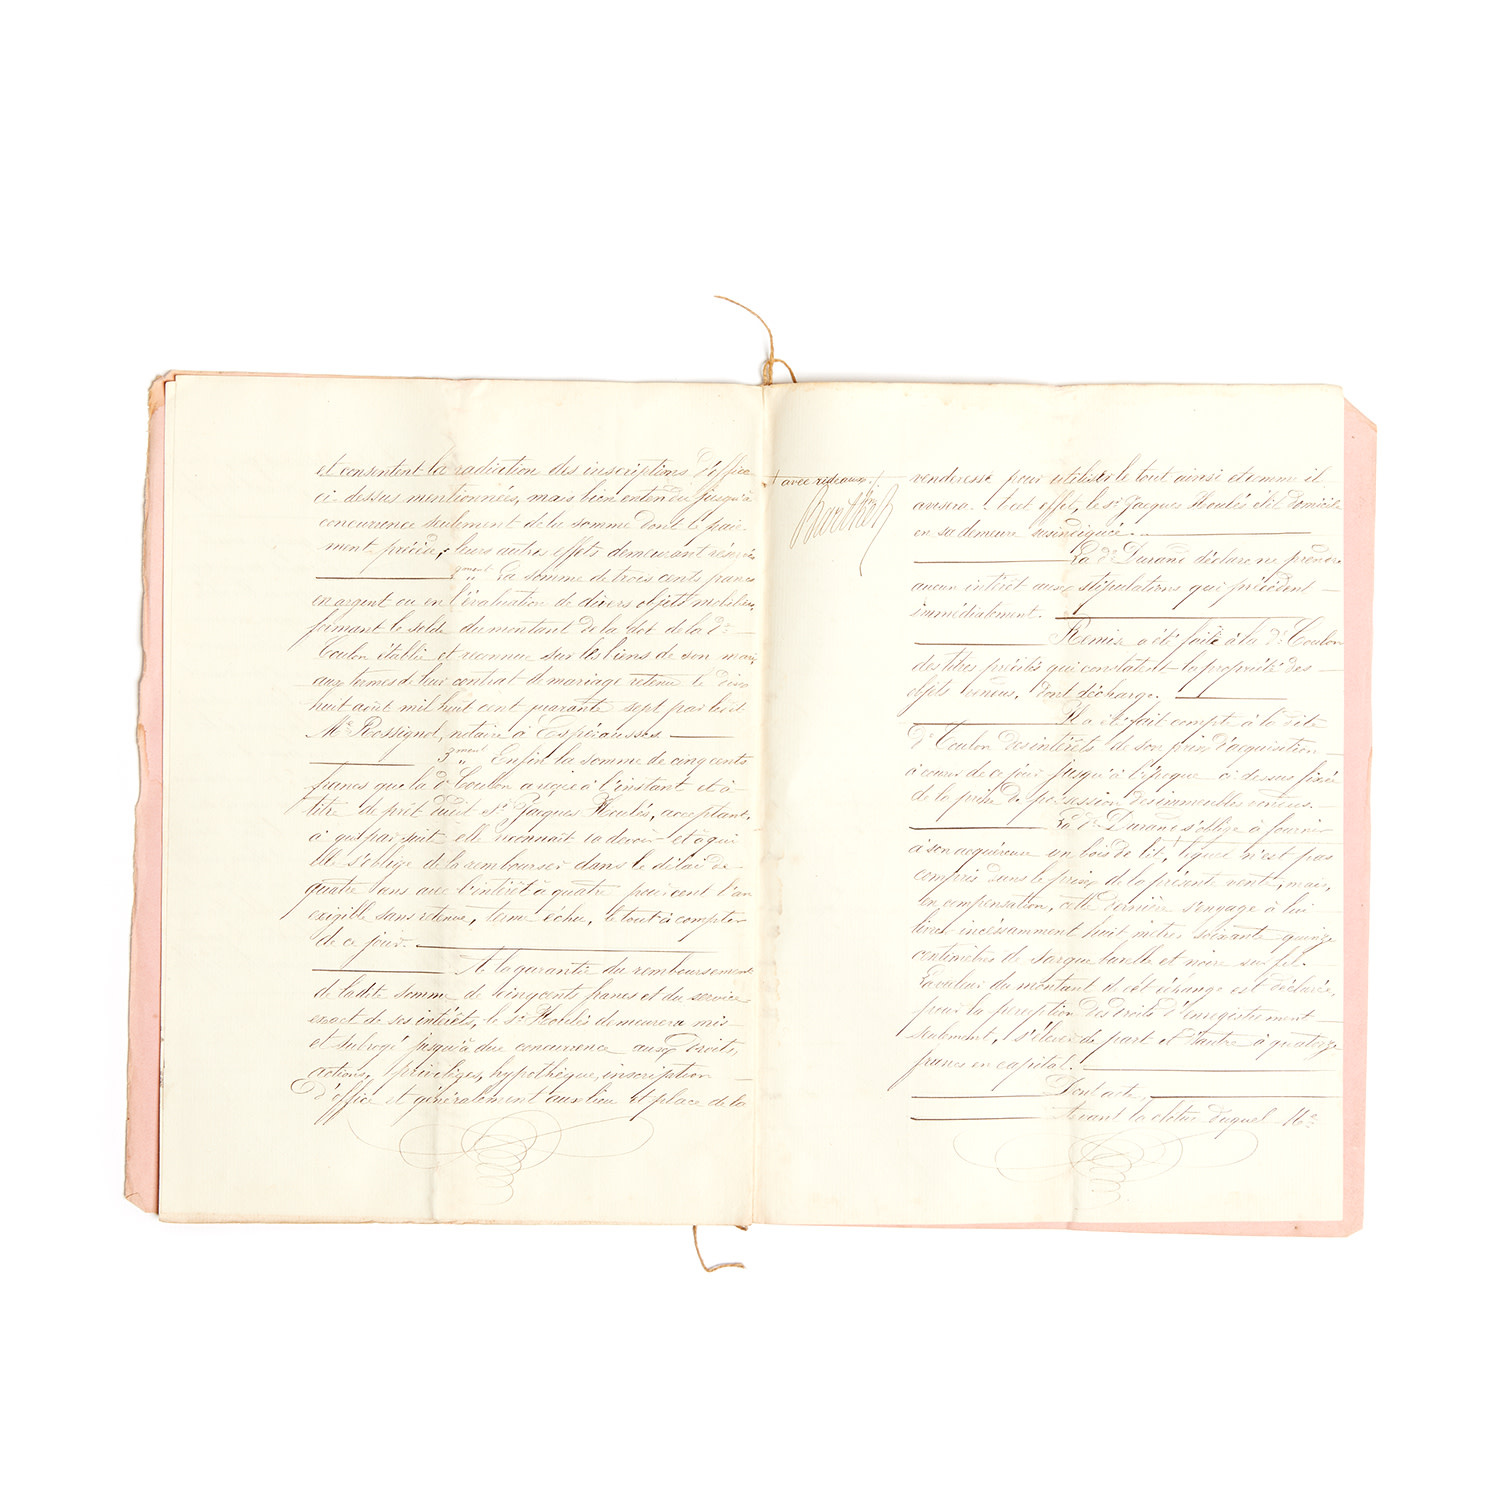 et consentent la radiation des inscriptions d'office
ci dessus mentionnées, mais bien entendu jusqu'à
concurrence seulement de la somme dont le paie-
ment précède; leurs autres effets demeurant réservés
2ment La somme de trois cents francs
en argent ou en l'évaluation de divers objets mobiliers,
formant le solde du montant de la dot de la De
Coulon établie et reconnue sur les biens de son mari,
aux termes de leur contrat de mariage retenu le dix
huit août mil huit cent quarante sept par ledit
Me Rossignol, notaire à Espérausses
3ment Enfin la somme de cinq cents
francs que la de Coulon a reçue à l'instant et à
titre de prêt dudit Sr Jacques Houlés, acceptant,
à qui par suite elle reconnaît la devoir et à qui
elle s'oblige de la rembourser dans le délai de
quatre ans avec l'intérêt à quatre pour cent l'an
exigible sans retenue, terme échu, le tout à compter
de ce jour.
A la garantie du remboursement
de ladite somme de cinq cents francs et du service
exact de ses intérêts, le sr Houlés demeurera mis
et subrogé jusqu'à due concurrence aux droits,
actions, privilèges, hypothèque, inscription
d'office et généralement au lieu et place de la
+ avec rideaux./.
Barthe
venderesse pour utiliser le tout ainsi et comme il
avisera. A cet effet, le sr Jacques Houlés élit domicile
en sa demeure susindiquée.
La de Durand déclare ne prendre
aucun intérêt aux stipulations qui précèdent
immédiatement.
Remise a été faite à la de Coulon
des titres précités qui constatent la propriété des
objets vendus, dont décharge.
Il a été fait compte à la dite
de Coulon des intérêts de son prix d'acquisition
à courir de ce jour jusqu'à l'époque ci dessus fixée
de la prise de possession des immeubles vendus.
La de Durand s'oblige à fournir
à son acquéreur un bois de lit, + lequel n'est pas
compris dans le prix de la présente vente, mais,
en compensation, cette dernière s'engage à lui
livrer incessamment huit mètres soixante quinze
centimètres de sargue burelle et noire sur fil.
La valeur du montant de cet échange est déclarée,
pour la perception des droits d'enregistrement
seulement, s'élever de part et d'autre à quatorze
francs en capital.
Dont acte,
Avant la clôture duquel Me